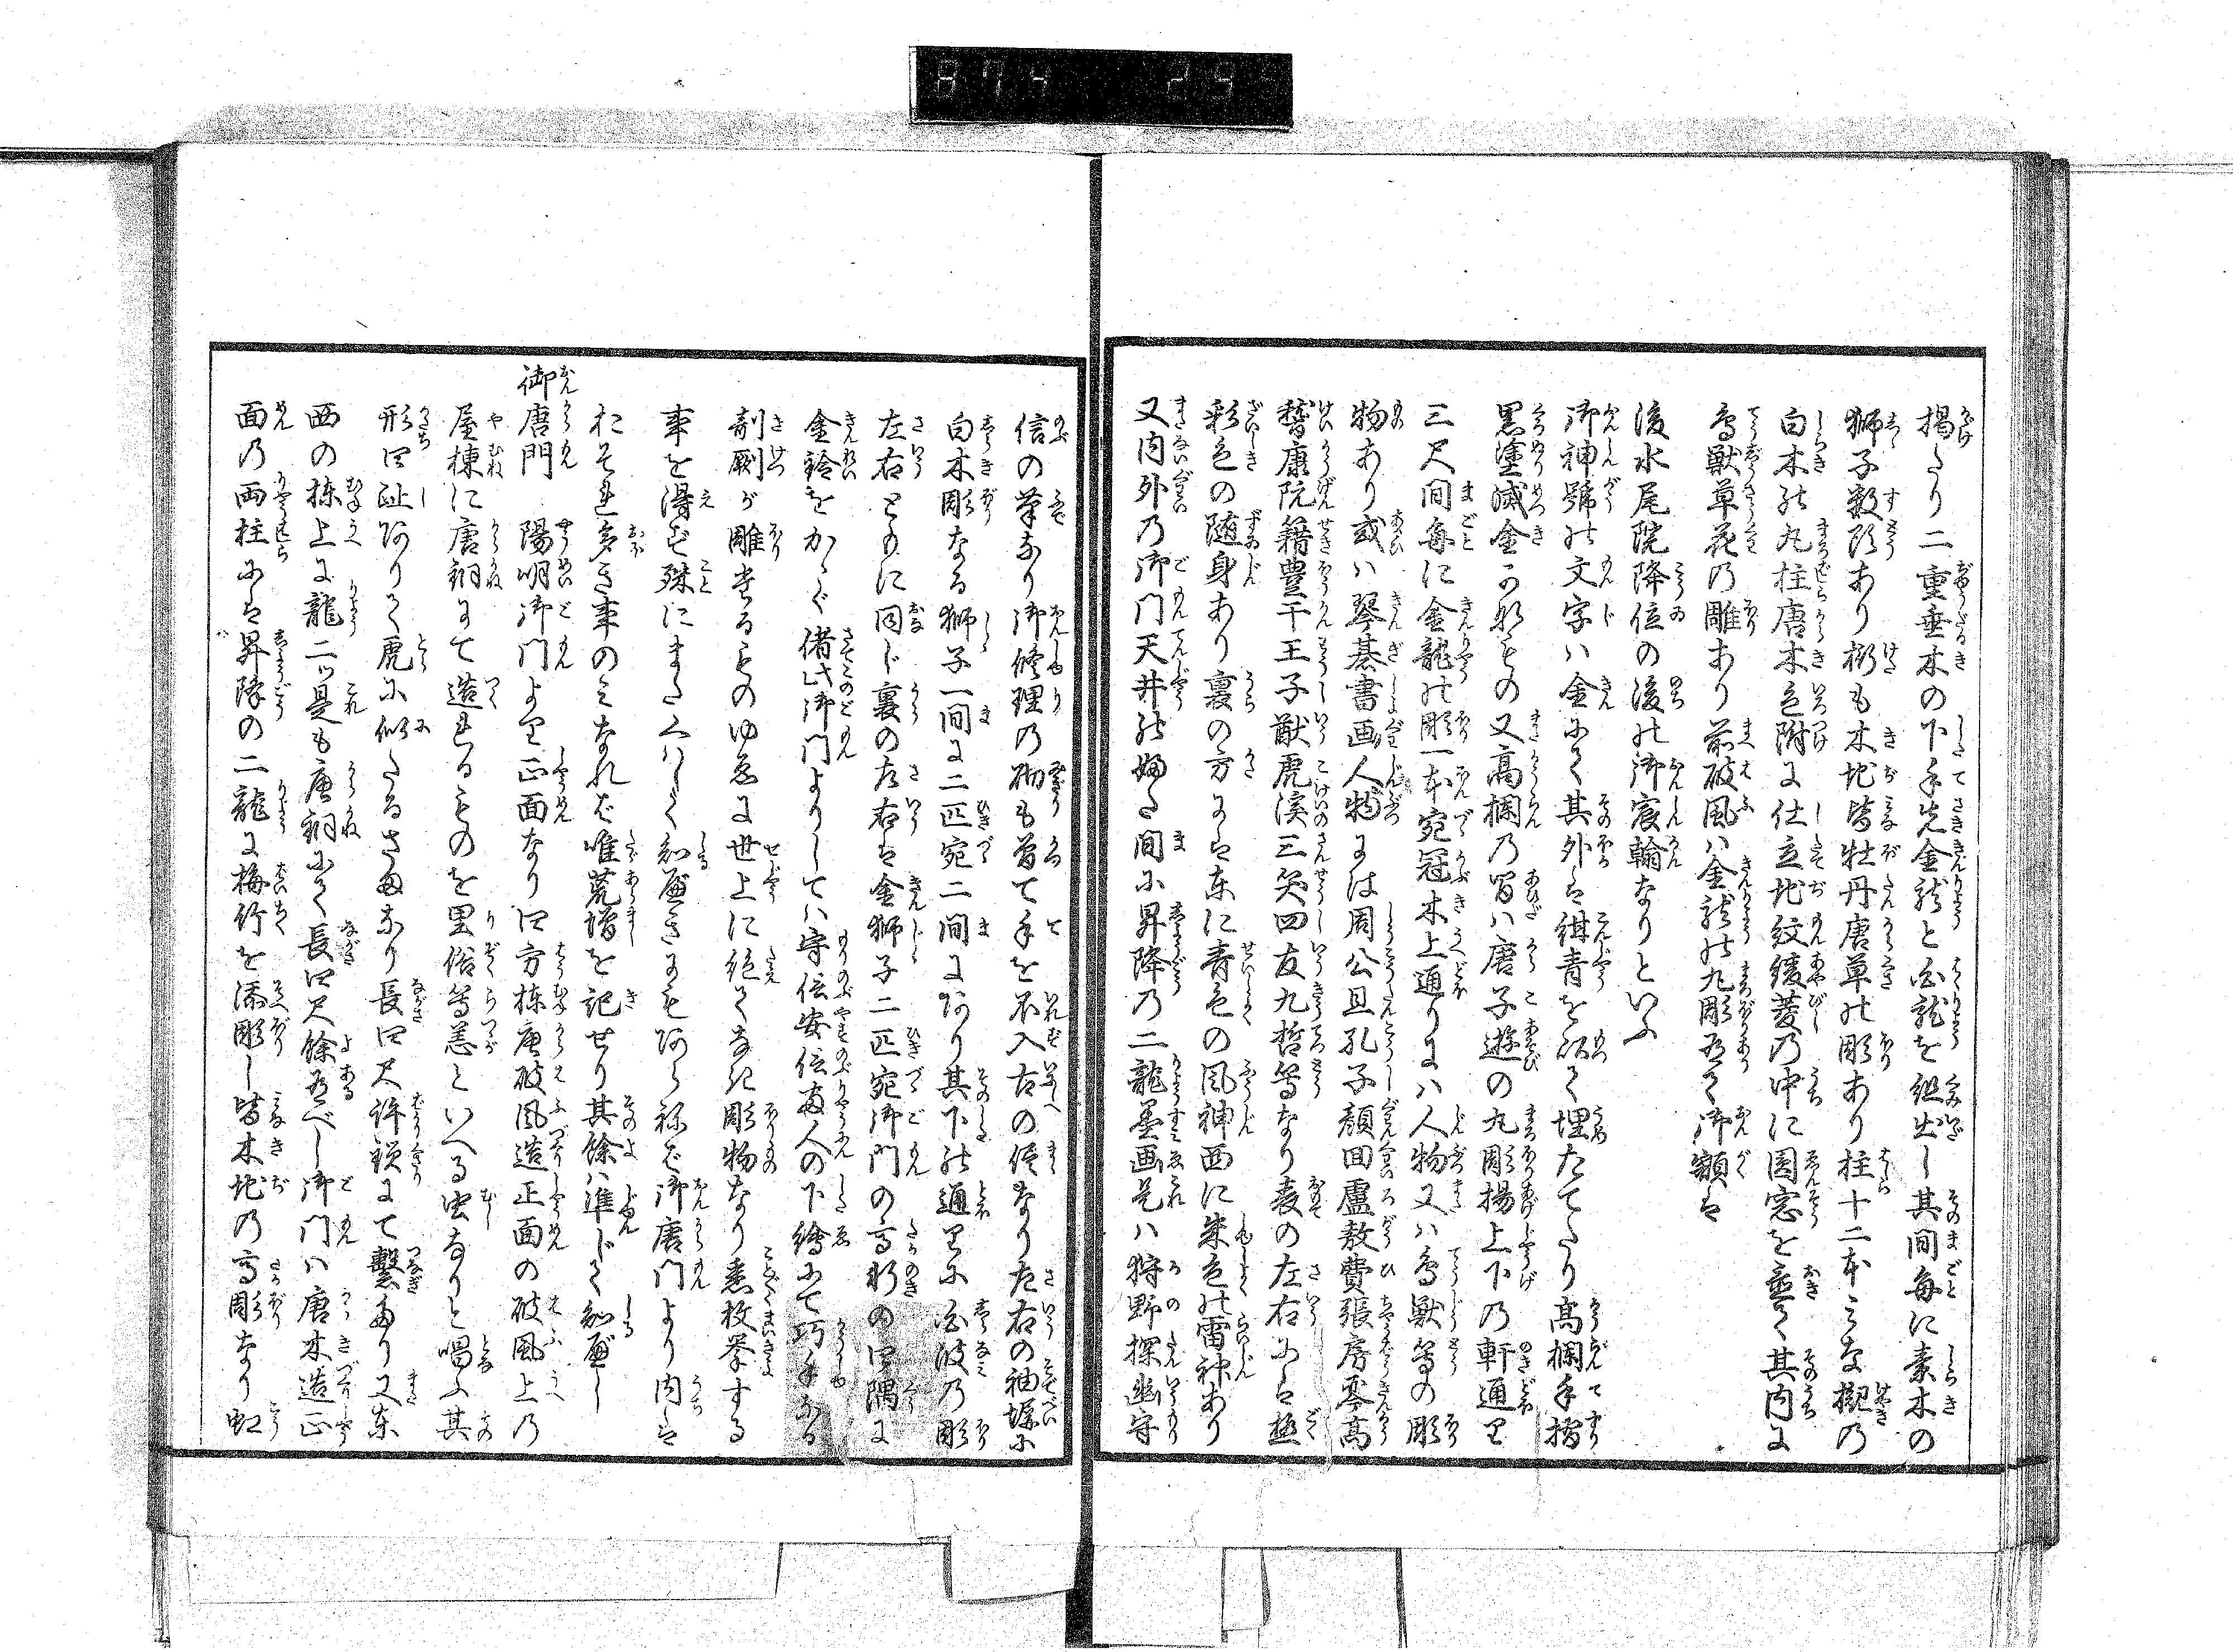 874 29
掲たり二重垂木の下手先金龍と白龍を組出し其間毎に素木の
獅子数頭あり桁も木地皆牡丹唐草の彫あり柱十二本みな槻の
白木の丸柱唐木色附に仕立地紋綾菱の中に圓窓を壷て其内に
鳥獣草花の雕あり前破風ハ金龍の丸彫有て御額は
後水尾院降位の後の御宸翰なりといふ
御神號の文字ハ金にて其外は紺青を以て埋たてたり高欄手摺
黒塗滅金の又高欄の間ハ唐子遊の丸彫揚上下の軒通り
三尺間毎に金龍の彫一本宛冠木上通りにハ人物又ハ鳥獣等の彫
物あり或ハ琴棊書画人物には周公旦孔子顔回盧敖費張房琴高
嵆康阮籍豊干王子猷虎渓三笑四友九哲等なり表の左右には極
彩色の随身あり裏の方には東に青色の風神西に朱色の雷神あり
又内外の御門天井の鏡間に昇降の二龍墨画是ハ狩野探幽守
信の筆なり御修理の砌も曽て手を不入古の侭なり左右の袖塀に
白木彫なる獅子一間に二匹宛二間にあり其下の通りに白波の彫
左右ともに同じ裏の左右は金獅子二匹宛御門の高軒の四隅に
金鈴をかく偖此御門よりしてハ守信安信両人の下繪にて巧手なる
剞劂が雕するものゆゑに世上に絶てなき彫物なり悉枚挙する
事を得ず殊にまた人いく知べきにもあらねば御唐門より内は
おそれ多き事のみなれば唯荒増を記せり其餘ハ准じて知べし
御唐門 陽明御門より正面なり四方棟唐破風造正面の破風上の
屋棟に唐銅にて造れるものを里俗等恙といへる虫なりと唱ふ其
形四趾ありて虎に似たるさまなり長四尺許鎖にて繋たり又東
西の棟上に龍二ツ是も唐銅にて長四尺餘有べし御門ハ唐木造正
面の両柱には昇降の二龍に梅竹を添彫し皆木地の高彫なり虹